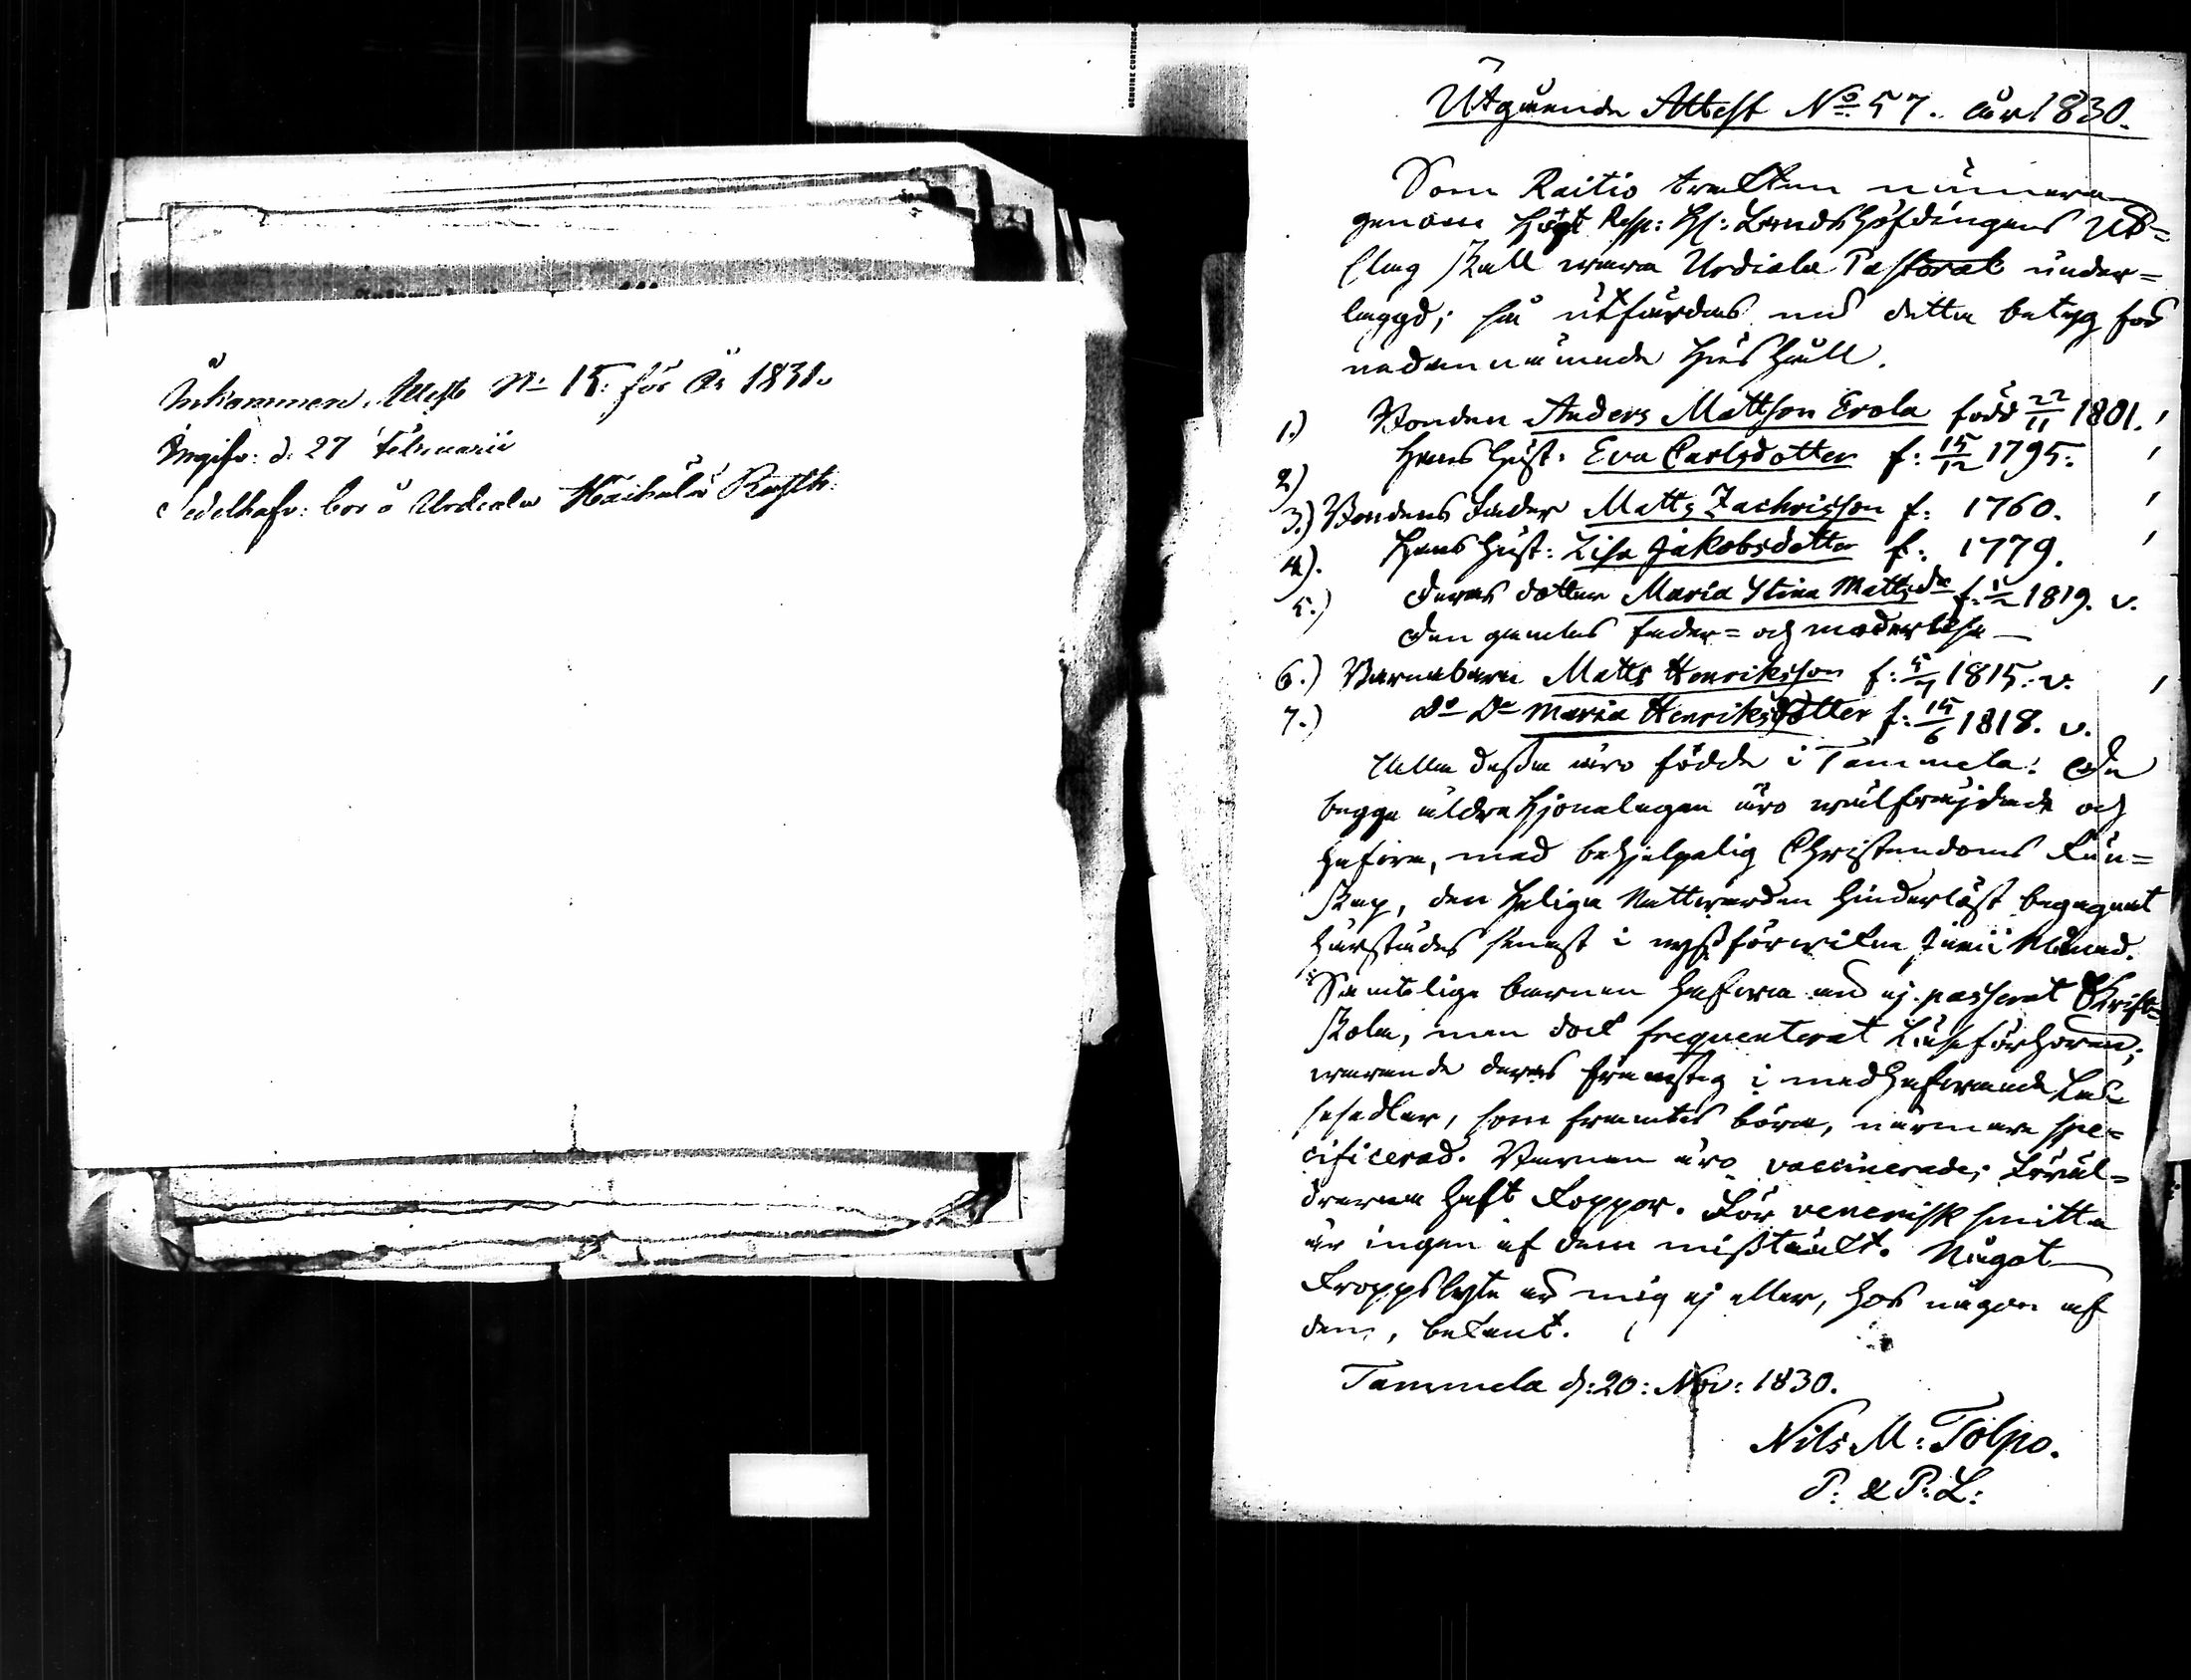 Inkommen Attest N: 15: för År 1831.
Ingifv: d. 27 Februarii
Sedelhafv: bor å Urdiala Hackala Rusth:
Utgående Attest No 57. år 1830.
Som Raitio trakten numera
genom Högt Resp: Hr: Landshöfdingens Ut=
slag skall wara Urdiala Pastorat under=
laggd; så utfärdas nu detta betyg för
nedannämnde hushåll.
1.) Bonden Anders Mattson Erola född 22/11 1801.
2) Hans hust: Eva Carlsdotter f: 15/12 1795.
3.) Bondens Fader Matts Zachrisson f: 1760.
4). Hans hust: Lisa Jakobsdotter f: 1779.
5.) Deras dotter Maria Stina Mattsdr f: 1819. v.
Den gamles fader= och moderlösa
6.) Barnabarn Matts Henriksson f: 5/7 1815. v.
7.) do Do Maria Henriksdotter f: 15/6 1818. v.
Alla dessa äro födde i Tammela. De
begge äldre Hjonelagen äro wälfräjdade och
hafwa, med behjelpelig Christendoms kun=
skap, den Heliga Nattwarden hinderlöst begagnat
härstädes senast i nystförwikne Junii Månad.
Samtelige barnen hafwa än ej passerat Skrift=
skola, men dock frequenterat Läseförhören;
warande deras framsteg i medhafwande Lä=
sesedlar, som framtes böra, närmare spe=
cificerad. Barnen äro vaccinerade; Föräl=
drarna haft koppor. För venerisk smitta
är ingen af dem misstänkt. Något
kroppslyte är mig ej eller, hos någon af
dem, bekant.
Tammela d: 20: Nov: 1830.
Nils M: Tolpo.
P: & P: L: